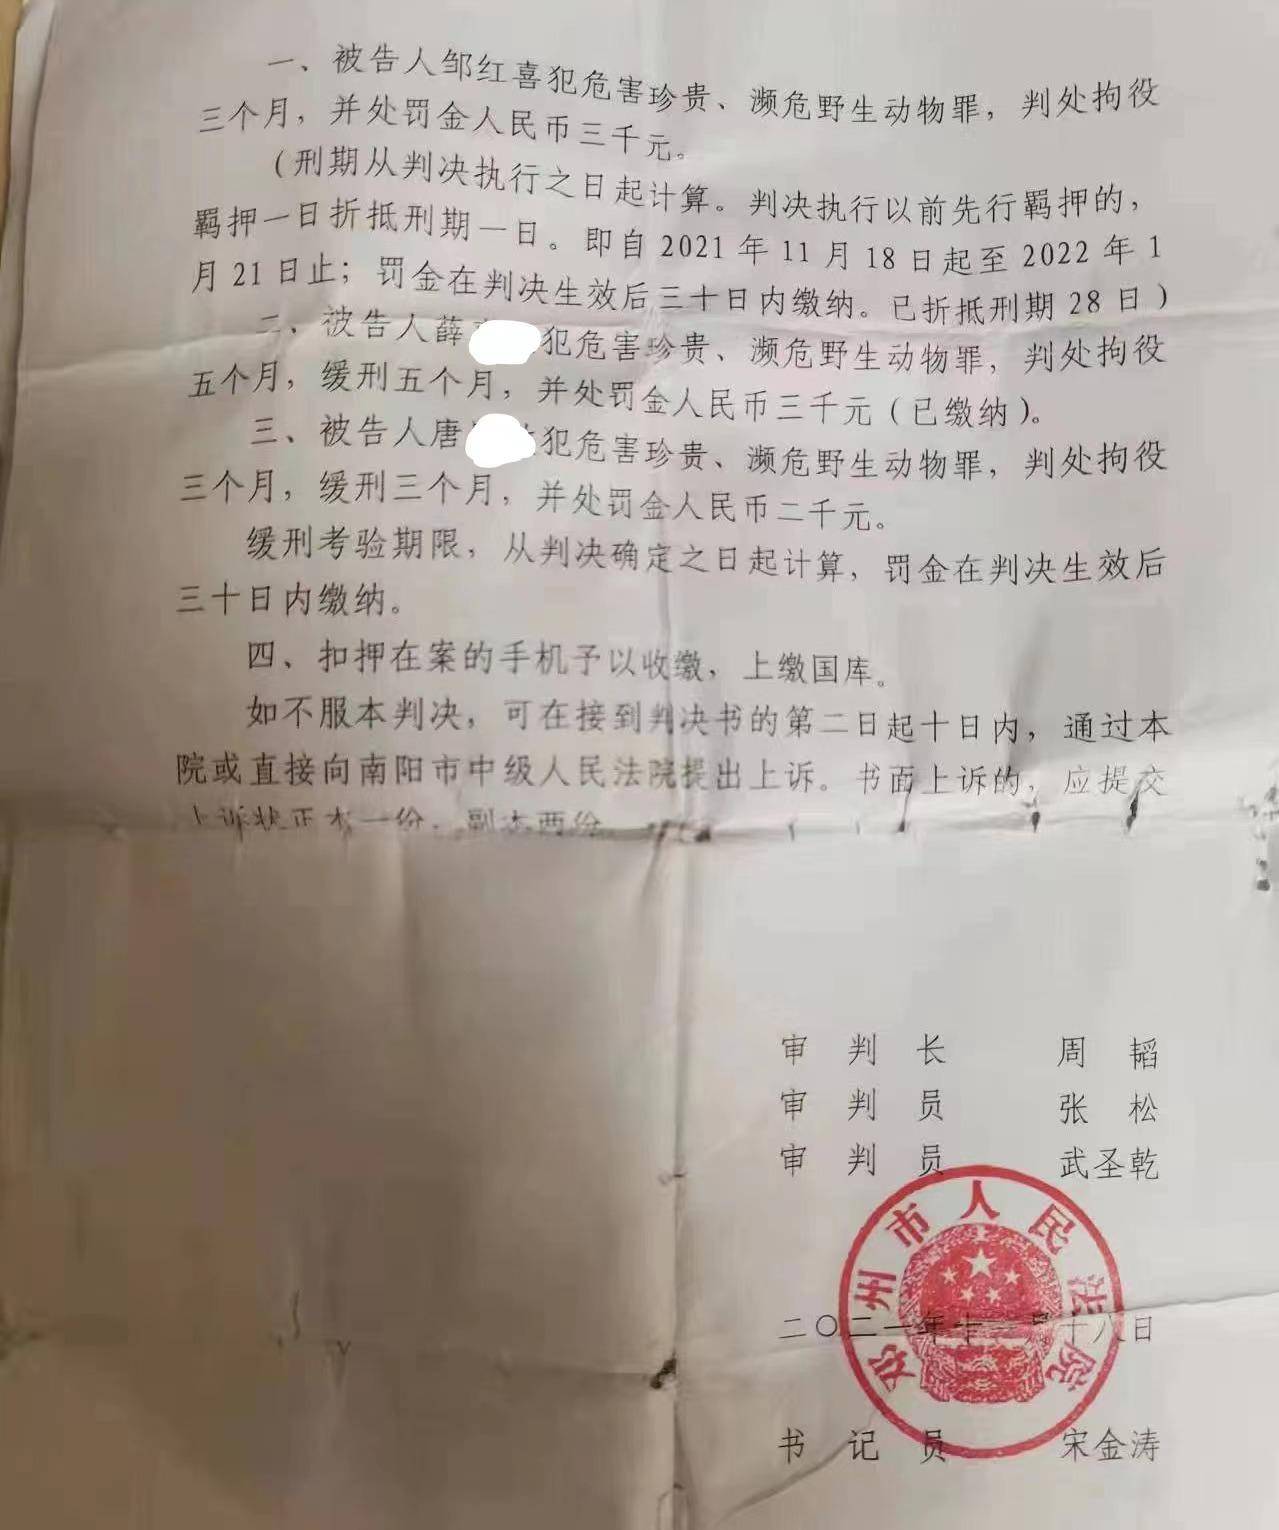 一、被告人邹红喜犯危害珍贵、濒危野生动物罪，判处拘役
三个月，并处罚金人民币三千元。
（刑期从判决执行之日起计算。判决执行以前先行羁押的，
羁押一日折抵刑期一日。即自2021年11月18日起至2022年1
月21日止；罚金在判决生效后三十日内缴纳。已折抵刑期28日）
二、被告人薛 犯危害珍贵、濒危野生动物罪，判处拘役
五个月，缓刑五个月，并处罚金人民币三千元（已缴纳）。
三、被告人唐 犯危害珍贵、濒危野生动物罪，判处拘役
三个月，缓刑三个月，并处罚金人民币二千元。
缓刑考验期限，从判决确定之日起计算，罚金在判决生效后
三十日内缴纳。
四、扣押在案的手机予以收缴，上缴国库。
如不服本判决，可在接到判决书的第二日起十日内，通过本
院或直接向南阳市中级人民法院提出上诉。书面上诉的，应提交
上诉状正本一份，副本两份。
审判长 周韬
审判员 张松
审判员 武圣乾
州市人民法院
二〇二一年十一月十八日
书记员 宋金涛